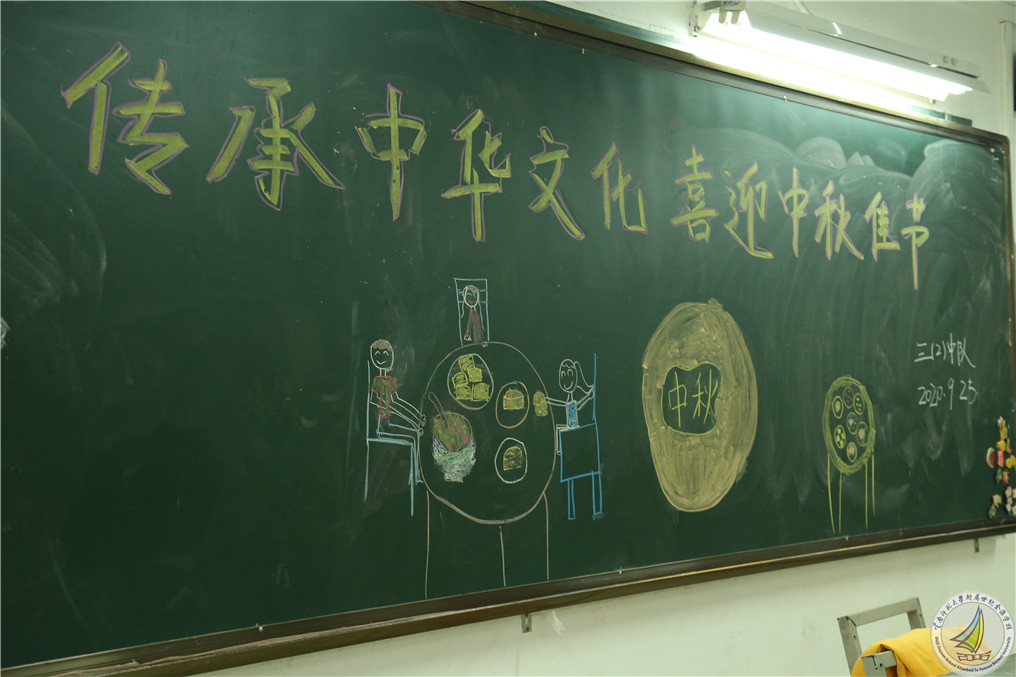 传承中华文化 喜迎中秋佳节
中秋
三(2)中队
2020.9.25